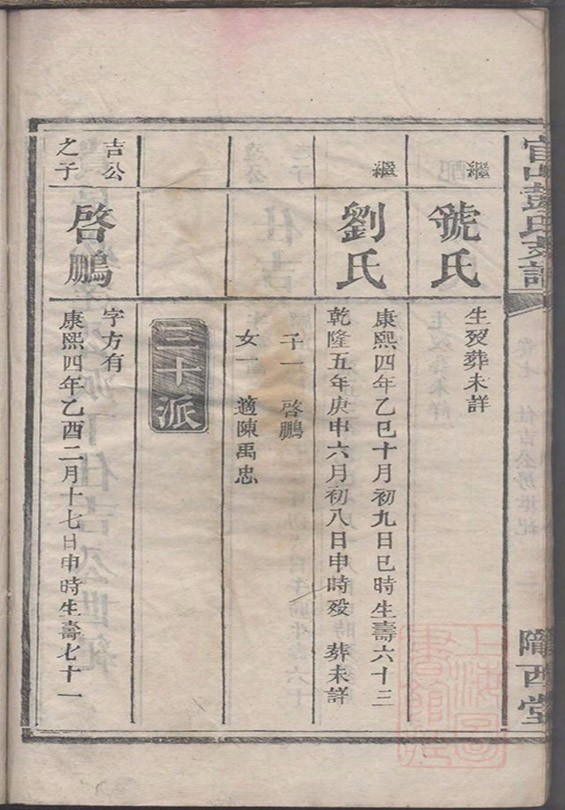 官山彭氏支譜
隴西堂
繼
虢氏
生歿葬未詳
繼
劉氏
康熙四年乙巳十月初九日巳時生壽六十三
乾隆五年庚申六月初八日申時歿 葬未詳
子一 啓鵬
女一 適陳禹忠
三十派
吉公
之子
啓鵬
字方有
康熙四年乙酉二月十七日申時生壽七十一
上海圖
書館藏